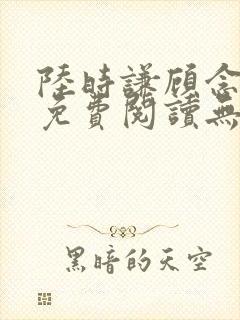 陸時謙顾念
免費閱讀無
黑暗的天空